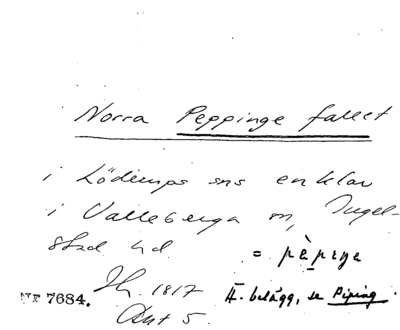 Norra Peppinge fallet
i Löderups sns enklav
i Valleberga sn, Ingel-
stad hd
= pèpiŋe
1817
NF 7684.
Ä. belägg, se Piping.
Akt 5